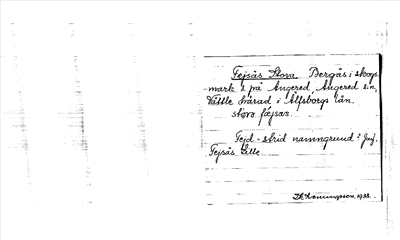 Fejsås Stora. Bergås i skogs
mark å på Angered, Angered s:n,
Vättle härad i Älfsborgs län.
störe fæjsas.
Fejd = strid namngrund? Jmf.
Fejsås Lille
1933.